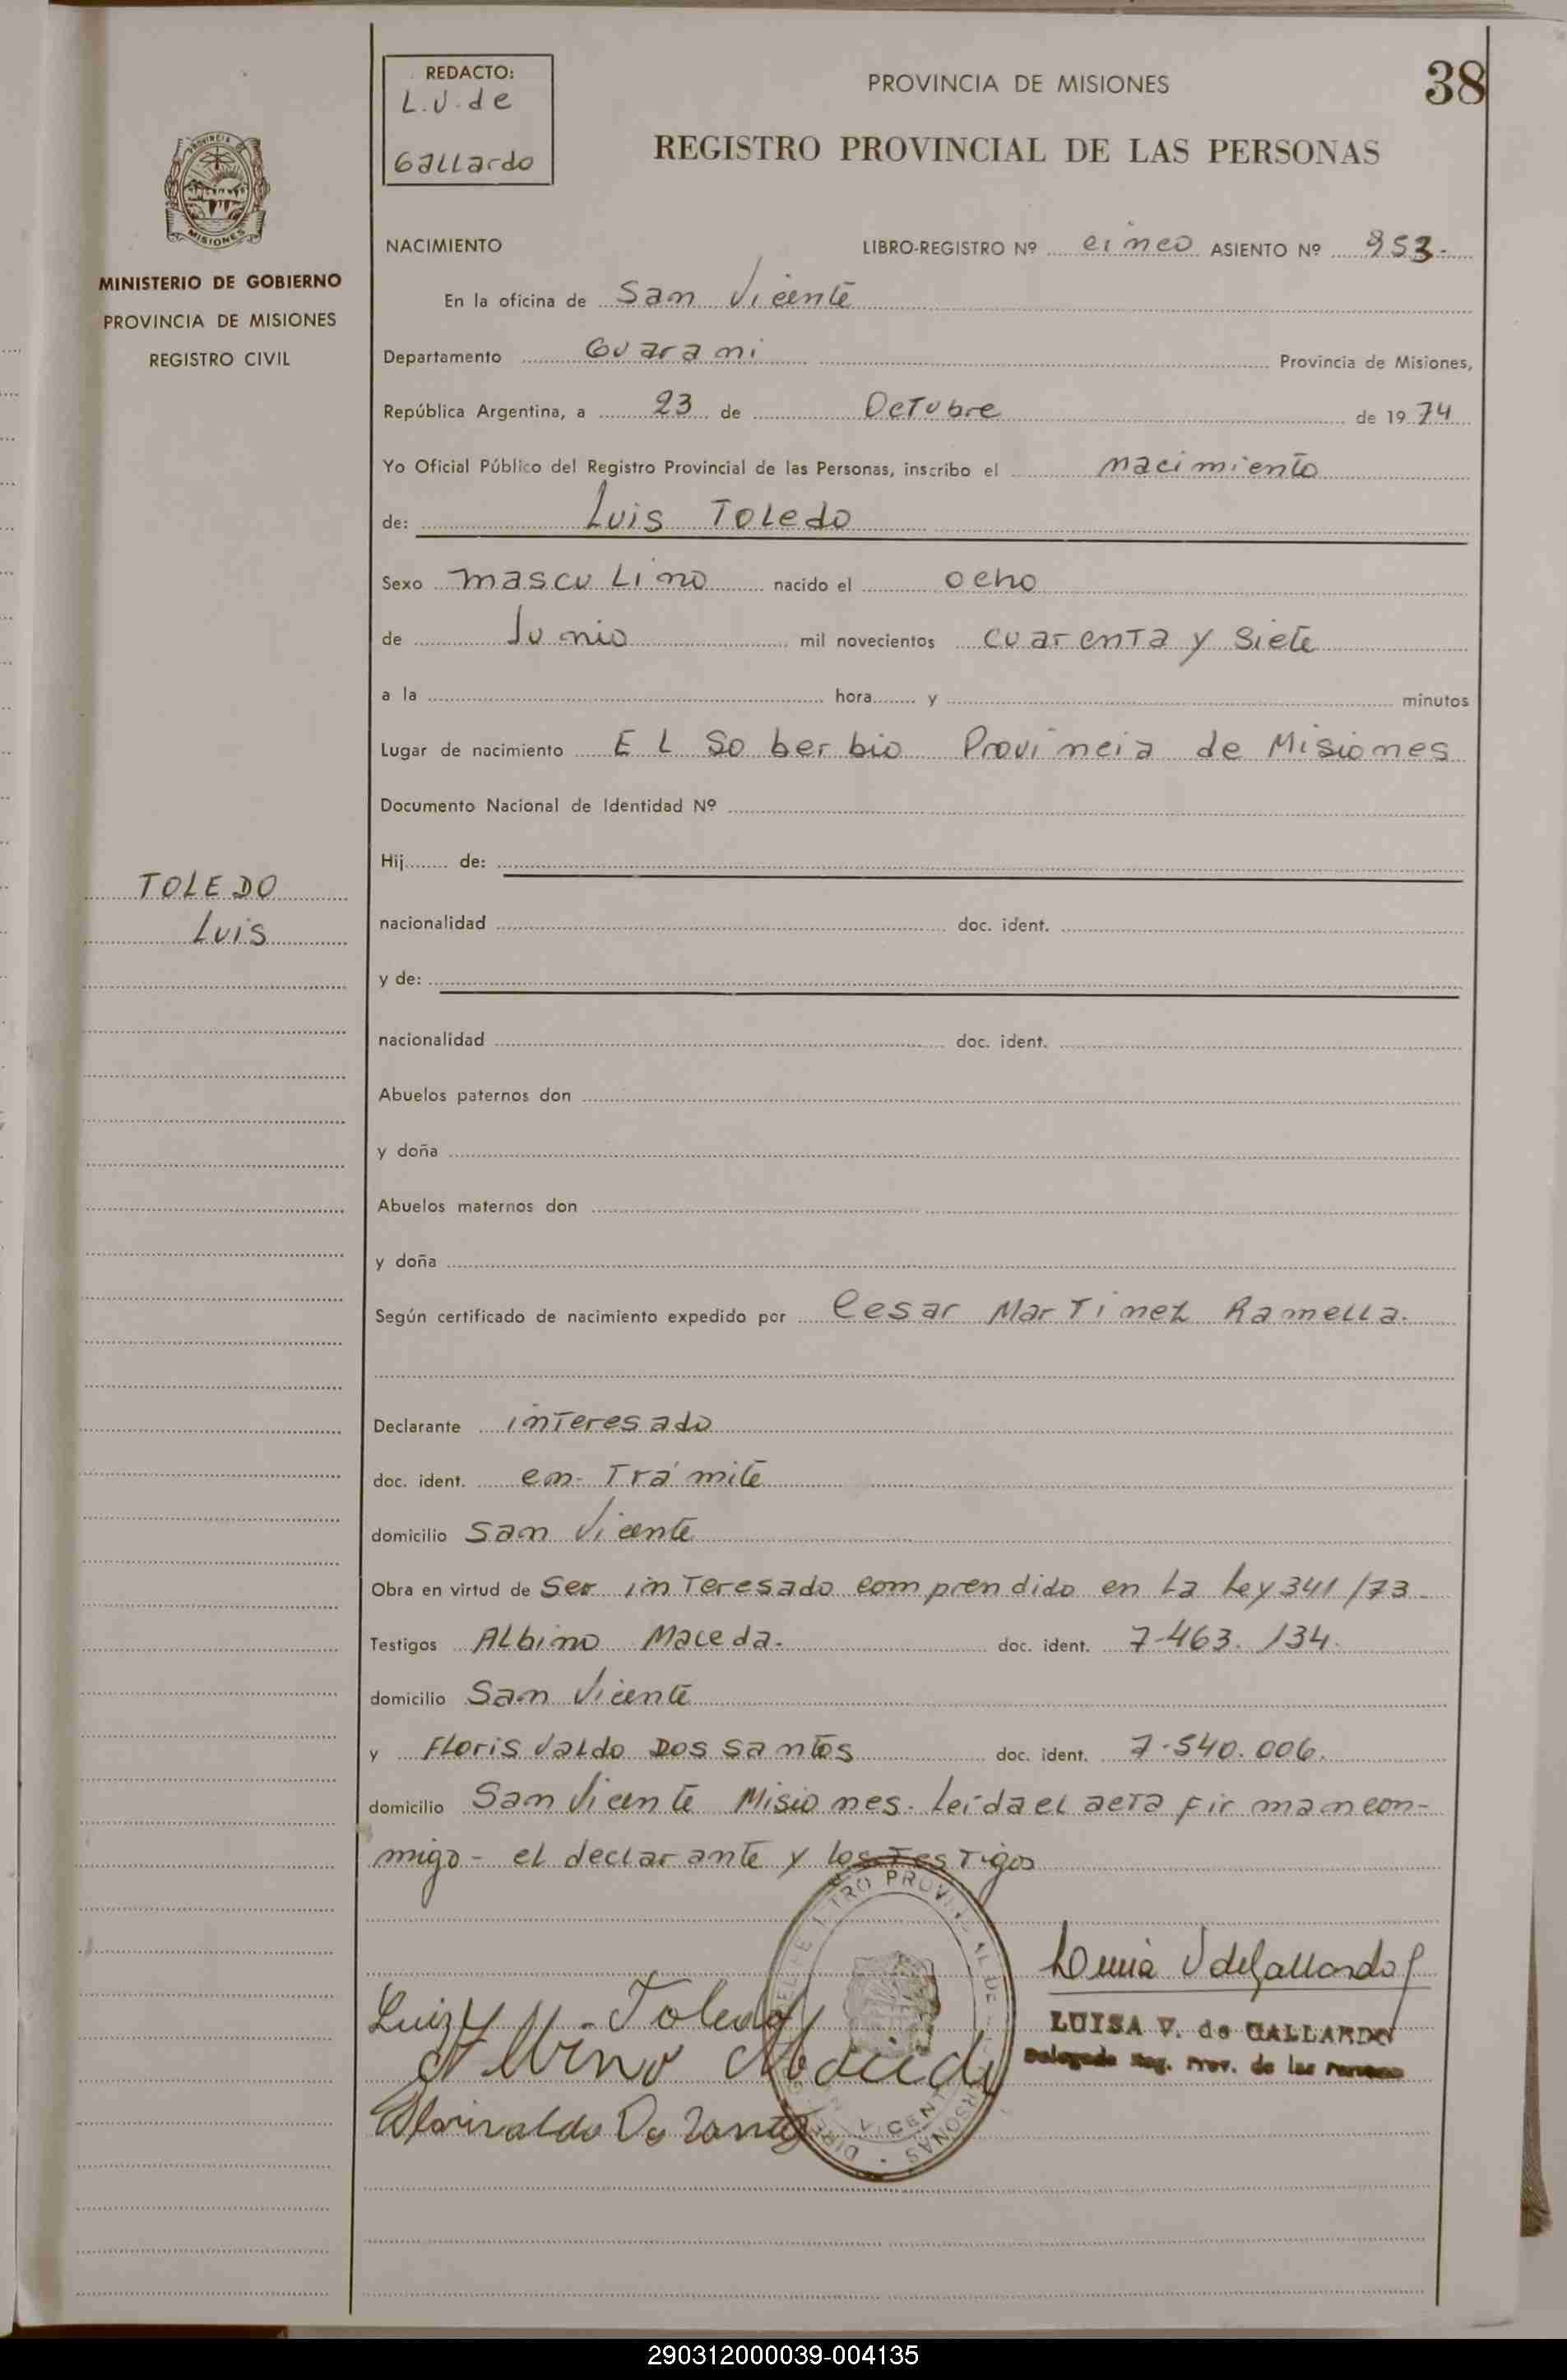 38
REDACTO:
L.V. de
Gallardo
PROVINCIA DE MISIONES
REGISTRO PROVINCIAL DE LAS PERSONAS
MISIONES
MINISTERIO DE GOBIERNO
PROVINCIA DE MISIONES
REGISTRO CIVIL
NACIMIENTO LIBRO-REGISTRO Nº cinco ASIENTO Nº 953.
En la oficina de San Vicente
Departamento Guarani Provincia de Misiones,
República Argentina, a 23 de Octubre de 1974
Yo Oficial Público del Registro Provincial de las Personas, inscribo el nacimiento
de: Luis Toledo
Sexo masculino nacido el ocho
de Junio mil novecientos cuarenta y siete
a la hora y minutos
Lugar de nacimiento El Soberbio Provincia de Misiones
Documento Nacional de Identidad Nº
Hij de:
TOLEDO
Luis
nacionalidad doc. ident.
y de:
nacionalidad doc. ident.
Abuelos paternos don
y doña
Abuelos maternos don
y doña
Según certificado de nacimiento expedido por Cesar Martinez Ramella.
Declarante interesado
doc. ident. en- Trámite
domicilio San Vicente
Obra en virtud de Ser interesado comprendido en la Ley 341/73-
Testigos Albino Maceda. doc. ident. 7-463.134.
domicilio San Vicente
y Florisvaldo Dos Santos doc. ident. 7.540.006.
domicilio San Vicente Misiones. Leída el acta firman con-
migo- el declarante y los Testigos
LUISA V. de GALLARDO
Delegada Reg. Prov. de las Personas
290312000039-004135